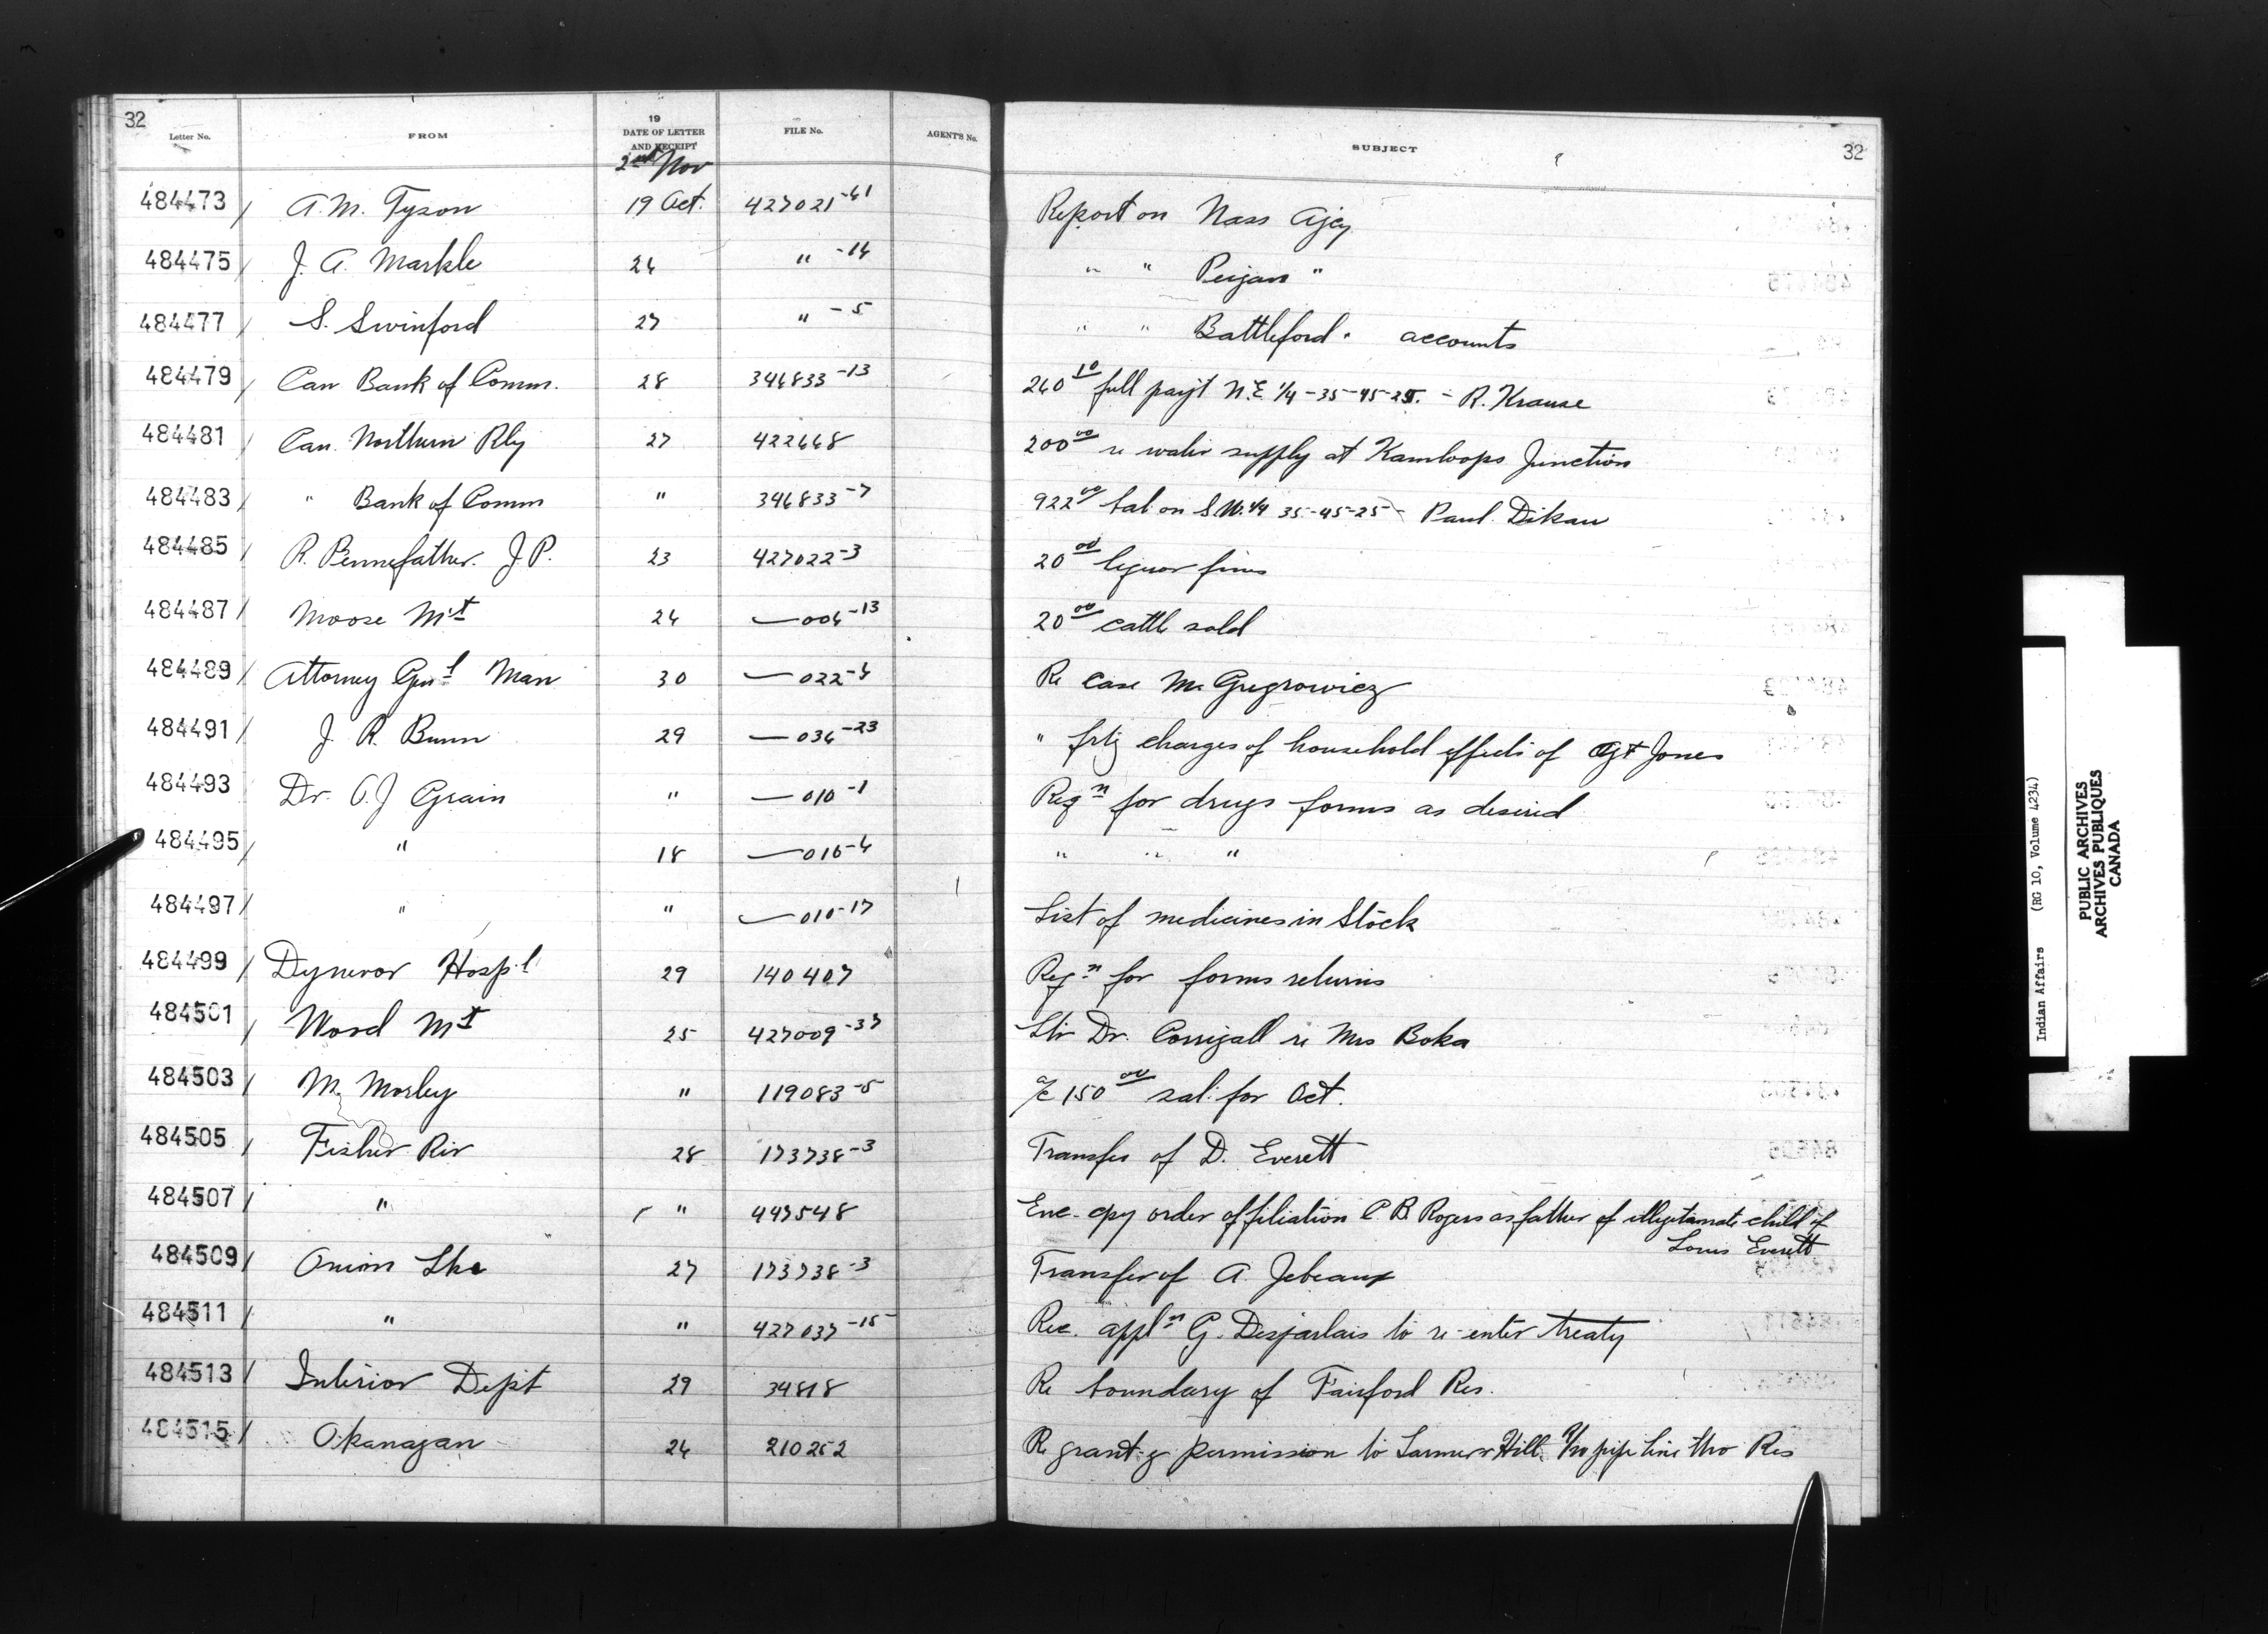 32
Letter No. FROM 19 DATE OF LETTER AND RECEIPT FILE No. AGENT'S No. SUBJECT 32
2nd Nov
484473 / A. M. Tyson 19 Oct. 427021-61 Report on Nass Agcy
484475 / J. A. Markle 24 " -14 " " Peigan "
484477 / S. Swinford 27 " -5 " " Battleford " accounts
484479 / Can Bank of Comm. 28 346833-13 260 10 full payt N.E 1/4-35-45-25. - R. Krause
484481 / Can. Northern Rly 27 422668 200 00 re water supply at Kamloops Junction
484483 / " Bank of Comm " 346833-7 922 00 bal on S.W. 1/4 35-45-25 - Paul Dikau
484485 / R. Pennefather. J.P. 23 427022-3 20 00 liquor fines
484487 / Moose Mt 24 —006-13 20 00 cattle sold
484489 / Attorney Genl Man 30 —022-4 Re case M. Gregrowicz
484491 / J. R. Bunn 29 —036-23 " frtg charges of household effects of Agt Jones
484493 / Dr. O. J Grain " —010-1 Reqn for drugs forms as desired
484495 / " 18 —016-4 " " "
484497 / " " —010-17 List of medicines in Stock
484499 / Dynevor Hosp'l 29 140407 Reqn for forms returns
484501 / Wood Mt 25 427009-37 Ltr Dr. Corrigall re Mrs Boka
484503 / M. Morley " 119083-5 a/c 150 00 sal. for Oct.
484505 / Fisher Riv 28 173738-3 Transfer of D. Everett
484507 / " " 447548 Enc. cpy order of filiation C. B. Rogers as father of illegitamate child of
Louis Everett
484509 / Onion Lke 27 173738-3 Transfer of A. Jebeaux
484511 / " " 427037-15 Rec. appln G. Desjarlais to re-enter treaty
484513 / Interior Dept 29 34818 Re boundary of Fairford Res.
484515 / Okanagan 24 210252 Re grant-g permission to Hill pipe line thro Res
Indian Affairs (RG 10, Volume 4234)
PUBLIC ARCHIVES
ARCHIVES PUBLIQUES
CANADA